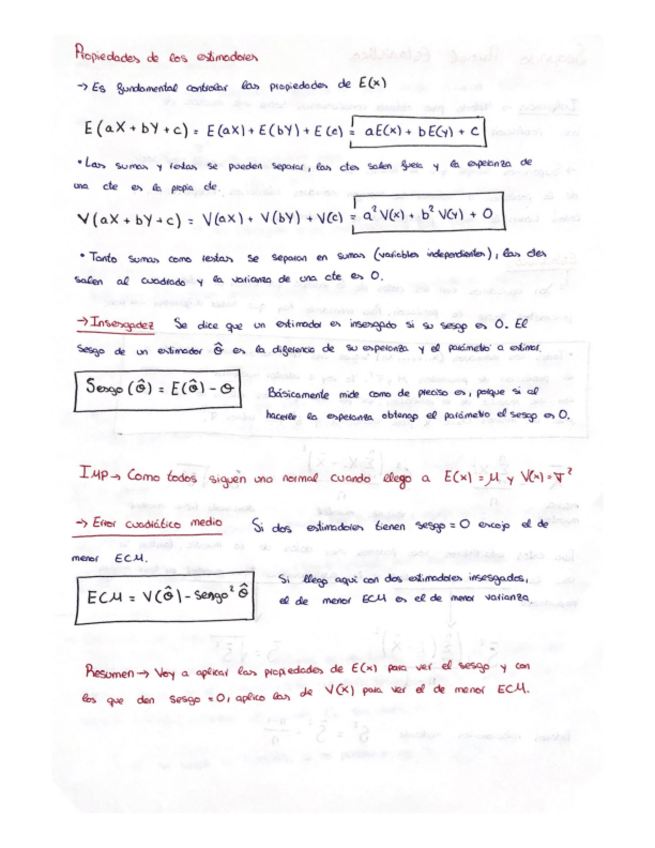 Propiedades de los estimadores
→ Es fundamental controlar las propiedades de E(x)
E(aX + bY + c) = E(aX) + E(bY) + E(c) = aE(x) + bE(y) + c
• Las sumas y restas se pueden separar, las ctes salen fuera y la esperanza de
una cte es la propia cte.
V(aX + bY + c) = V(aX) + V(bY) + V(c) = a² V(x) + b² V(y) + 0
• Tanto sumas como restas se separan en sumas (variables independientes), las ctes
salen al cuadrado y la varianza de una cte es 0.
→ Insesgadez Se dice que un estimador es insesgado si su sesgo es 0. El
sesgo de un estimador θ̂ es la diferencia de su esperanza y el parámetro a estimar.
Sesgo (θ̂) = E(θ̂) - θ
Básicamente mide como de preciso es, porque si al
hacerle la esperanza obtengo el parámetro el sesgo es 0.
IMP → Como todos siguen una normal cuando llego a E(x) = μ y V(x) = σ²
→ Error cuadrático medio Si dos estimadores tienen sesgo = 0 escojo el de
menor ECM.
ECM = V(θ̂) - sesgo² θ̂
Si llego aquí con dos estimadores insesgados,
el de menor ECM es el de menor varianza.
Resumen → Voy a aplicar las propiedades de E(x) para ver el sesgo y con
los que den sesgo = 0, aplico las de V(x) para ver el de menor ECM.